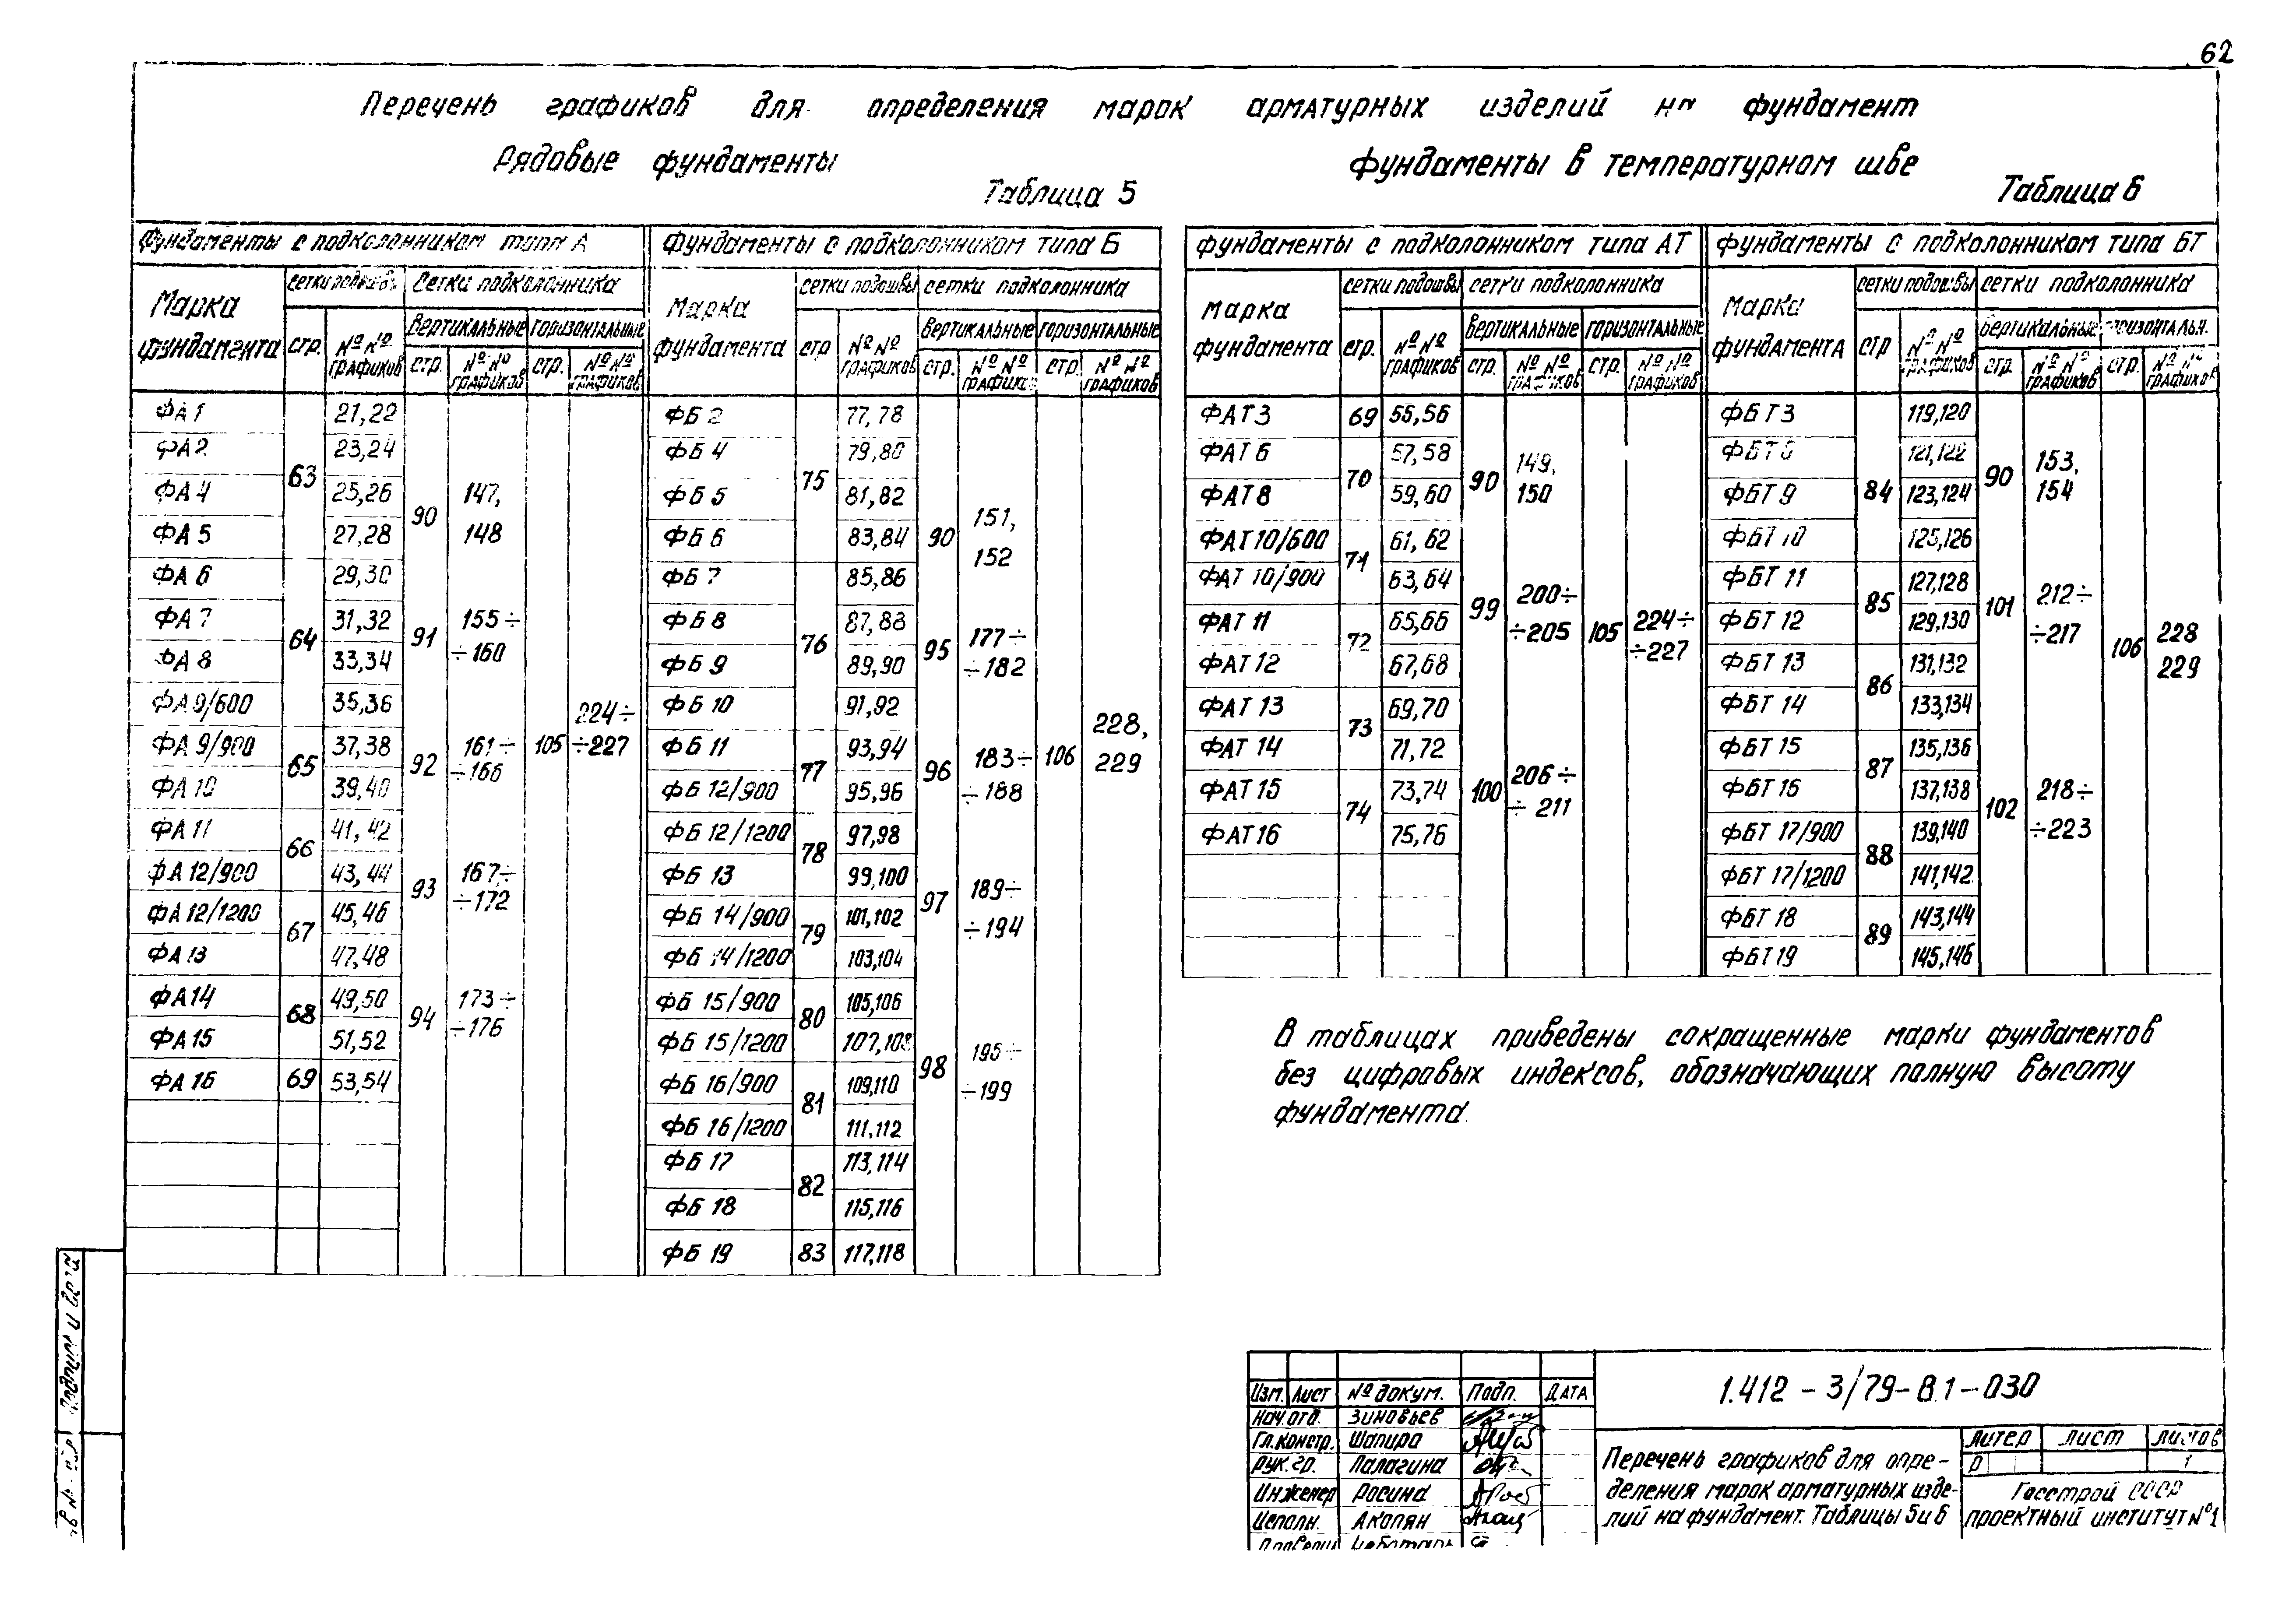 62
Перечень графиков для определения марок арматурных изделий на фундамент
Рядовые фундаменты
Таблица 5
Фундаменты в температурном шве
Таблица 6
Фундаменты с подколонником типа А
Марка фундамента
сетки подошвы
Сетки подколонника
стр.
№№ графиков
вертикальные
горизонтальные
стр.
№№ графиков
стр.
№№ графиков
ФА 1 21,22
ФА 2 23,24
63
ФА 4 25,26
ФА 5 27,28
90 147, 148
ФА 6 29,30
ФА 7 31,32
64
ФА 8 33,34
91 155÷ ÷160
ФА 9/600 35,36
ФА 9/900 37,38
65
ФА 10 39,40
92 161÷ ÷166
105 224÷ ÷227
ФА 11 41,42
66
ФА 12/900 43,44
93 167÷ ÷172
ФА 12/1200 45,46
67
ФА 13 47,48
ФА 14 49,50
68
ФА 15 51,52
94 173÷ ÷176
ФА 16 69 53,54
Фундаменты с подколонником типа Б
Марка фундамента
сетки подошвы
сетки подколонника
стр
№№ графиков
вертикальные
горизонтальные
стр.
№№ графиков
стр.
№№ графиков
ФБ 2 77,78
ФБ 4 79,80
75
ФБ 5 81,82
ФБ 6 83,84
90 151, 152
ФБ 7 85,86
ФБ 8 87,88
76
ФБ 9 89,90
95 177÷ ÷182
ФБ 10 91,92
ФБ 11 93,94
77
ФБ 12/900 95,96
96 183÷ ÷188
106 228, 229
ФБ 12/1200 97,98
78
ФБ 13 99,100
97 189÷ ÷194
ФБ 14/900 101,102
79
ФБ 14/1200 103,104
ФБ 15/900 105,106
80
ФБ 15/1200 107,108
98 195÷ ÷199
ФБ 16/900 109,110
81
ФБ 16/1200 111,112
ФБ 17 113,114
82
ФБ 18 115,116
ФБ 19 83 117,118
Фундаменты с подколонником типа АТ
Марка фундамента
сетки подошвы
сетки подколонника
стр.
№№ графиков
вертикальные
горизонтальные
стр.
№№ графиков
стр.
№№ графиков
ФАТ 3 69 55,56
ФАТ 6 57,58
70
ФАТ 8 59,60
90 149, 150
ФАТ 10/600 61,62
71
ФАТ 10/900 63,64
99 200÷ ÷205
105 224÷ ÷227
ФАТ 11 65,66
72
ФАТ 12 67,68
ФАТ 13 69,70
73
ФАТ 14 71,72
ФАТ 15 73,74
74
ФАТ 16 75,76
100 206÷ ÷211
Фундаменты с подколонником типа БТ
Марка фундамента
сетки подошвы
сетки подколонника
стр
№№ графиков
вертикальные
горизонтальн.
стр.
№№ графиков
стр.
№№ графиков
ФБТ 3 119,120
121,122
84
ФБТ 9 123,124
90 153, 154
ФБТ 10 125,126
ФБТ 11 127,128
85
ФБТ 12 129,130
101 212÷ ÷217
106 228 229
ФБТ 13 131,132
86
ФБТ 14 133,134
ФБТ 15 135,136
87
ФБТ 16 137,138
102 218÷ ÷223
ФБТ 17/900 139,140
88
ФБТ 17/1200 141,142
ФБТ 18 143,144
89
ФБТ 19 145,146
В таблицах приведены сокращенные марки фундаментов
без цифровых индексов, обозначающих полную высоту
фундамента.
Подпись и дата
Изм. Лист № докум. Подп. Дата
Нач.отд. Зиновьев
Гл.констр. Шапиро
Рук.гр. Палагина
Инженер Росина
Исполн. Акопян
1.412-3/79-В.1-030
Перечень графиков для опре-
деления марок арматурных изде-
лий на фундамент. Таблицы 5 и 6
Литер Лист Листов
Р 1
Госстрой СССР
проектный институт №1